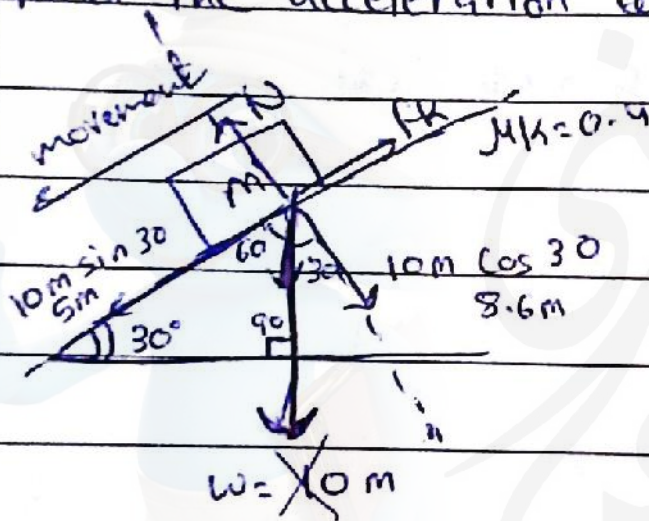 the acceleration
movement
N
fk
μk = 0.4
m
10m sin 30
5m
60
30
10m cos 30
8.6m
30°
90
w = 10 m